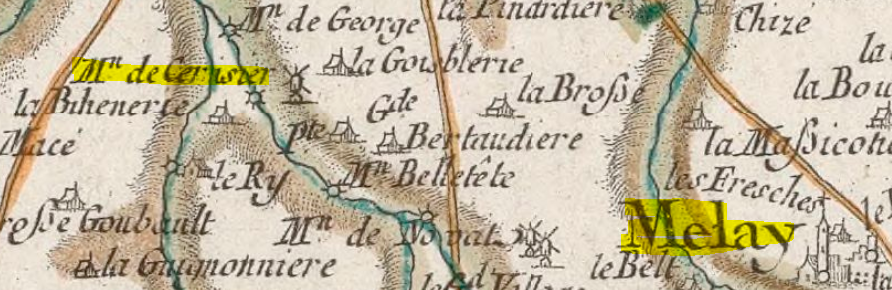 Mn de George
la Pinardiere
Chizé
Mn de Cerisier
la Goublerie
la
la Bihenerie
la Brosse
la Bou
Gde
Pte
Bertaudiere
Macé
la Massicotie
le Ry
Mn Belletête
les Fresches
Goubault
Mn de Novat
Melay
le
le Belt
la Guignonniere
le Gd Village